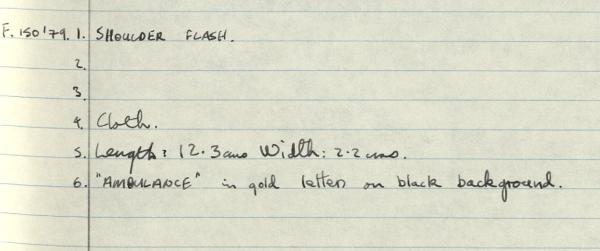 F.150'79. 1. SHOULDER FLASH.
2.
3.
4. Cloth.
5. Length: 12.3cms Width: 2.2cms.
6. "AMBULANCE" in gold letters on black background.